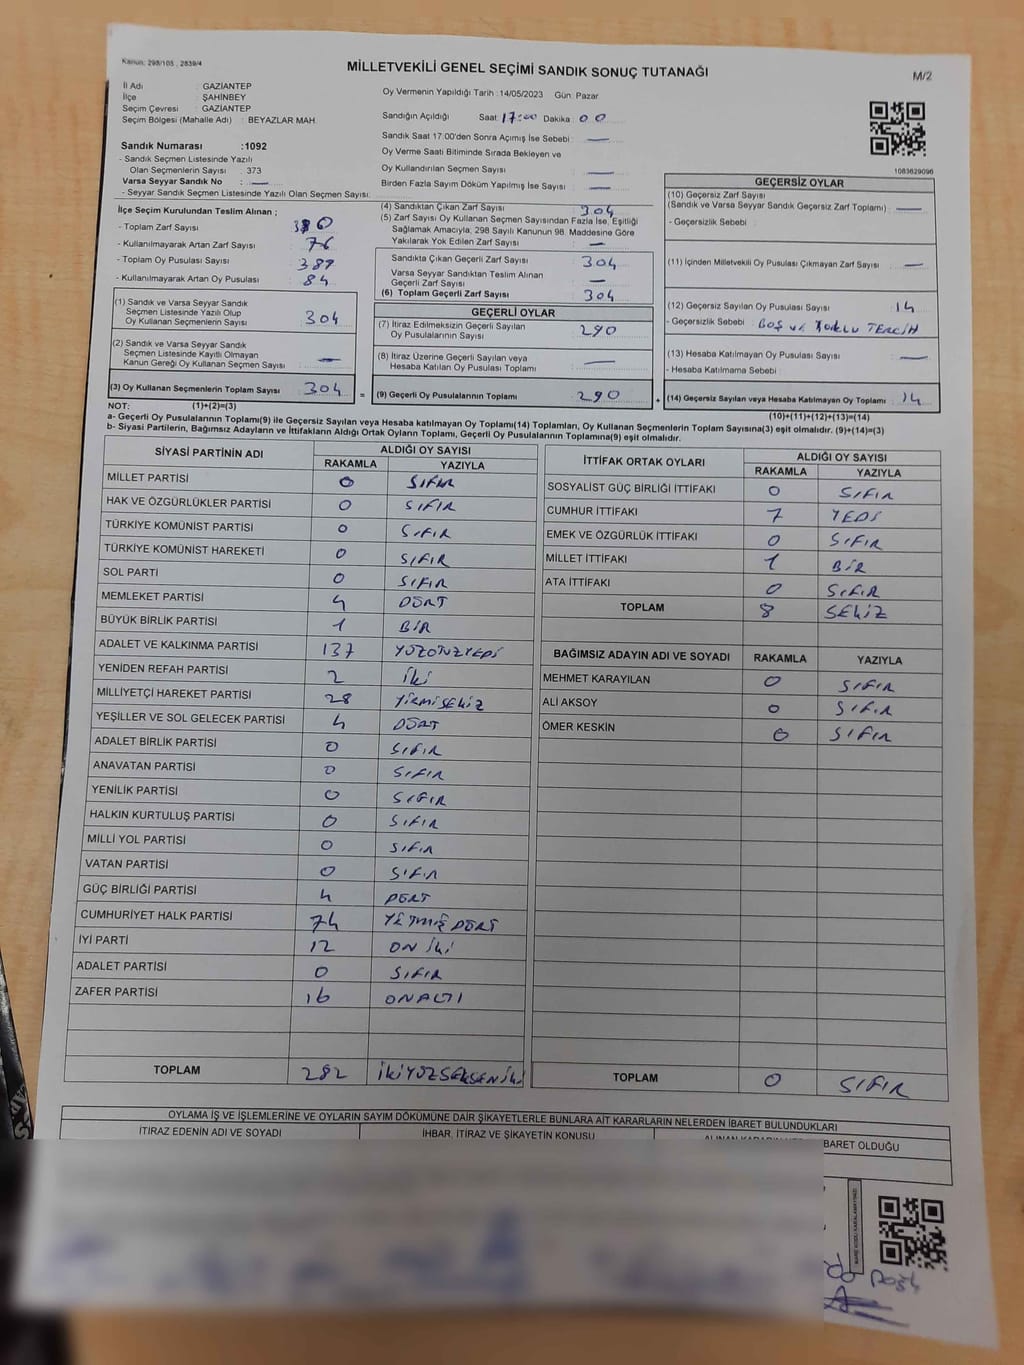 Kanun: 298/105 , 2839/4
MİLLETVEKİLİ GENEL SEÇİMİ SANDIK SONUÇ TUTANAĞI
M/2
İl Adı : GAZİANTEP
İlçe : ŞAHİNBEY
Seçim Çevresi : GAZİANTEP
Seçim Bölgesi (Mahalle Adı) : BEYAZLAR MAH.
Oy Vermenin Yapıldığı Tarih :14/05/2023 Gün: Pazar
Sandığın Açıldığı Saat: 17:00 Dakika: 00
Sandık Saat 17:00'den Sonra Açımış İse Sebebi : —
Oy Verme Saati Bitiminde Sırada Bekleyen ve
Oy Kullandırılan Seçmen Sayısı : —
Birden Fazla Sayım Döküm Yapılmış İse Sayısı : —
1083629096
Sandık Numarası :1092
- Sandık Seçmen Listesinde Yazılı
Olan Seçmenlerin Sayısı : 373
Varsa Seyyar Sandık No : —
- Seyyar Sandık Seçmen Listesinde Yazılı Olan Seçmen Sayısı:
İlçe Seçim Kurulundan Teslim Alınan ;
- Toplam Zarf Sayısı : 380
- Kullanılmayarak Artan Zarf Sayısı : 76
- Toplam Oy Pusulası Sayısı : 389
- Kullanılmayarak Artan Oy Pusulası : 84
(1) Sandık ve Varsa Seyyar Sandık
Seçmen Listesinde Yazılı Olup
Oy Kullanan Seçmenlerin Sayısı : 304
(2) Sandık ve Varsa Seyyar Sandık
Seçmen Listesinde Kayıtlı Olmayan
Kanun Gereği Oy Kullanan Seçmen Sayısı : —
(3) Oy Kullanan Seçmenlerin Toplam Sayısı : 304
(4) Sandıktan Çıkan Zarf Sayısı : 304
(5) Zarf Sayısı Oy Kullanan Seçmen Sayısından Fazla İse, Eşitliği
Sağlamak Amacıyla, 298 Sayılı Kanunun 98. Maddesine Göre
Yakılarak Yok Edilen Zarf Sayısı : —
Sandıkta Çıkan Geçerli Zarf Sayısı : 304
Varsa Seyyar Sandıktan Teslim Alınan
Geçerli Zarf Sayısı : —
(6) Toplam Geçerli Zarf Sayısı : 304
GEÇERLİ OYLAR
(7) İtiraz Edilmeksizin Geçerli Sayılan
Oy Pusulalarının Sayısı : 290
(8) İtiraz Üzerine Geçerli Sayılan veya
Hesaba Katılan Oy Pusulası Toplamı : —
= (9) Geçerli Oy Pusulalarının Toplamı : 290
GEÇERSİZ OYLAR
(10) Geçersiz Zarf Sayısı
(Sandık ve Varsa Seyyar Sandık Geçersiz Zarf Toplamı) : —
- Geçersizlik Sebebi :
(11) İçinden Milletvekili Oy Pusulası Çıkmayan Zarf Sayısı : —
(12) Geçersiz Sayılan Oy Pusulası Sayısı : 14
- Geçersizlik Sebebi : BOŞ VE TERCİH
(13) Hesaba Katılmayan Oy Pusulası Sayısı : —
- Hesaba Katılmama Sebebi :
+ (14) Geçersiz Sayılan veya Hesaba Katılmayan Oy Toplamı : 14
NOT: (1)+(2)=(3)
(10)+(11)+(12)+(13)=(14)
a- Geçerli Oy Pusulalarının Toplamı(9) ile Geçersiz Sayılan veya Hesaba katılmayan Oy Toplamı(14) Toplamları, Oy Kullanan Seçmenlerin Toplam Sayısına(3) eşit olmalıdır. (9)+(14)=(3)
b- Siyasi Partilerin, Bağımsız Adayların ve İttifakların Aldığı Ortak Oyların Toplamı, Geçerli Oy Pusulalarının Toplamına(9) eşit olmalıdır.
SİYASİ PARTİNİN ADI ALDIĞI OY SAYISI
RAKAMLA YAZIYLA
MİLLET PARTİSİ 0 SIFIR
HAK VE ÖZGÜRLÜKLER PARTİSİ 0 SIFIR
TÜRKİYE KOMÜNİST PARTİSİ 0 SIFIR
TÜRKİYE KOMÜNİST HAREKETİ 0 SIFIR
SOL PARTİ 0 SIFIR
MEMLEKET PARTİSİ 4 DÖRT
BÜYÜK BİRLİK PARTİSİ 1 BİR
ADALET VE KALKINMA PARTİSİ 137 YÜZOTUZYEDİ
YENİDEN REFAH PARTİSİ 2 İKİ
MİLLİYETÇİ HAREKET PARTİSİ 28 YİRMİSEKİZ
YEŞİLLER VE SOL GELECEK PARTİSİ 4 DÖRT
ADALET BİRLİK PARTİSİ 0 SIFIR
ANAVATAN PARTİSİ 0 SIFIR
YENİLİK PARTİSİ 0 SIFIR
HALKIN KURTULUŞ PARTİSİ 0 SIFIR
MİLLİ YOL PARTİSİ 0 SIFIR
VATAN PARTİSİ 0 SIFIR
GÜÇ BİRLİĞİ PARTİSİ 4 DÖRT
CUMHURİYET HALK PARTİSİ 74 YETMİŞ DÖRT
İYİ PARTİ 12 ON İKİ
ADALET PARTİSİ 0 SIFIR
ZAFER PARTİSİ 16 ONALTI
TOPLAM 282 İKİYÜZSEKSENİKİ
İTTİFAK ORTAK OYLARI ALDIĞI OY SAYISI
RAKAMLA YAZIYLA
SOSYALİST GÜÇ BİRLİĞİ İTTİFAKI 0 SIFIR
CUMHUR İTTİFAKI 7 YEDİ
EMEK VE ÖZGÜRLÜK İTTİFAKI 0 SIFIR
MİLLET İTTİFAKI 1 BİR
ATA İTTİFAKI 0 SIFIR
TOPLAM 8 SEKİZ
BAĞIMSIZ ADAYIN ADI VE SOYADI RAKAMLA YAZIYLA
MEHMET KARAYILAN 0 SIFIR
ALİ AKSOY 0 SIFIR
ÖMER KESKİN 0 SIFIR
TOPLAM 0 SIFIR
OYLAMA İŞ VE İŞLEMLERİNE VE OYLARIN SAYIM DÖKÜMÜNE DAİR ŞİKAYETLERLE BUNLARA AİT KARARLARIN NELERDEN İBARET BULUNDUKLARI
İTİRAZ EDENİN ADI VE SOYADI İHBAR, İTİRAZ VE ŞİKAYETİN KONUSU BARET OLDUĞU